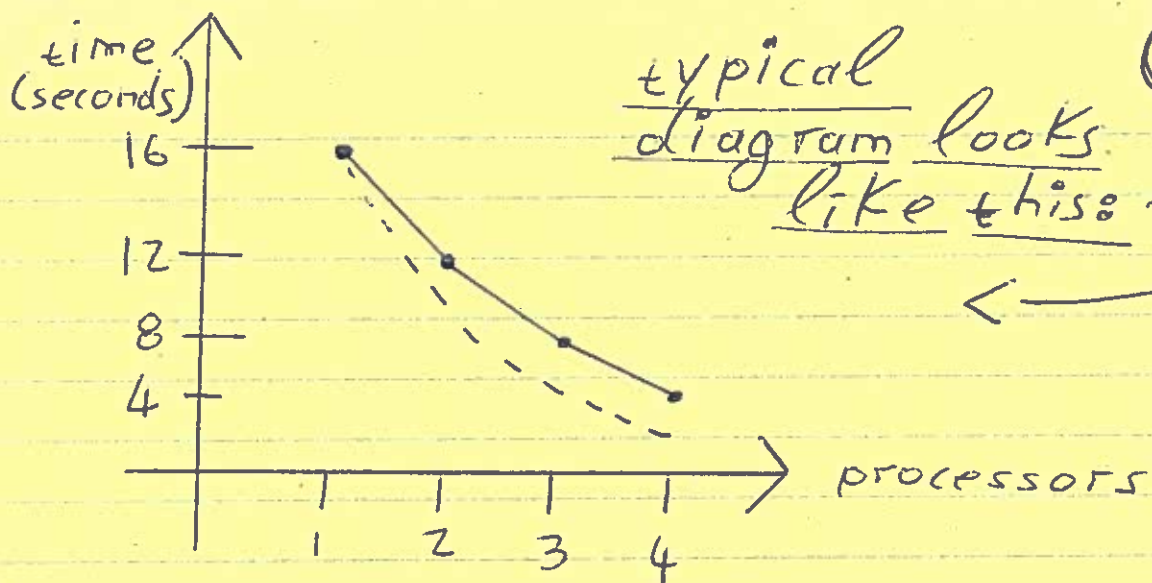 time
(seconds)
16
12
8
4
1 2 3 4
processors
typical
diagram looks
like this: